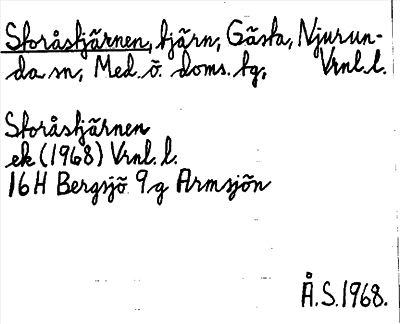 Storåstjärnen, tjärn, Gåsta, Njurun-
da sn, Med. ö. doms. tg, Vrnl. l.
Storåstjärnen
ek (1968) Vrnl. l.
16 H Bergsjö 9 g Armsjön
Å.S. 1968.